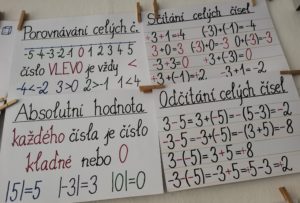 Porovnávání celých č.
-5 -4 -3 -2 -1 0 1 2 3 4 5
číslo VLEVO je vždy <
-4<-2 3>0 2>-1 1<4
Sčítání celých čísel
+3+1=4 (-3)+(-1)=-4
+3+0=3 (-3)+0=-3 0+(-3)=-3
-3+1=-2
Absolutní hodnota
každého čísla je číslo
kladné nebo 0
|5|=5 |-3|=3 |0|=0
Odčítání celých čísel
3-5=3+(-5)=-(5-3)=-2
-3-5=-3+(-5)=-(3+5)=-8
3-(-5)=3+5=+8
-3-(-5)=-3+5=5-3=2